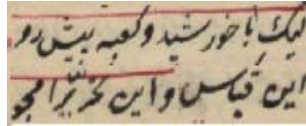 لیک با خورشید و کعبه پیش رو
این قیاس و این تحری را مجو